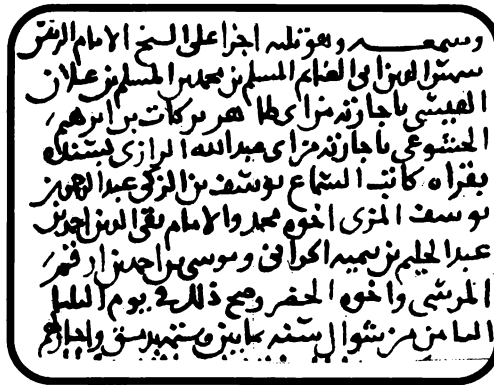 وسمعه وهو ثلثه اجزا على الشيخ الامام الرئيس
شمس الدين ابي الغنايم المسلم بن محمد بن المسلم بن علان
القيسي باجازته من ابي طاهر بركات بن ابرهيم
الخشوعي باجازته من ابي عبد الله الرازي بسنده
بقراه كاتب السماع يوسف بن الزكي عبد الرحمن بن
يوسف المزي اخوه محمد والامام تقي الدين احمد بن
عبد الحليم بن تيميه الحراني وموسى بن احمد بن
واخوه الخضر وصح ذلك في يوم الثلثا
الثامن من شوال سنه ثمانين وستمه بدمشق واجاز لهم